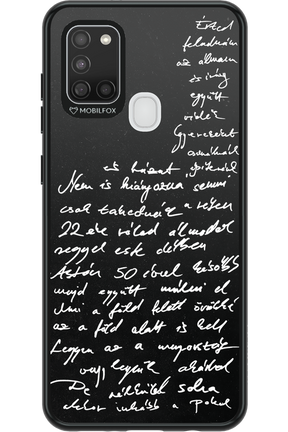 MOBILFOX
Érted
feladnám
az álmaim
és így
együtt
Gyerekeket csinálnánk
és házat építenék
Nem is hiányozna semmi
csak takarodnék a réten
22 éve rólad álmodok
reggel este délben
Aztán 50 évvel később
majd együtt múlni el
a föld felett örökké
az a föld alatt is kell
Legyen az a mennyország
vagy legyünk akárhol
De nélküled soha
akkor inkább a pokol